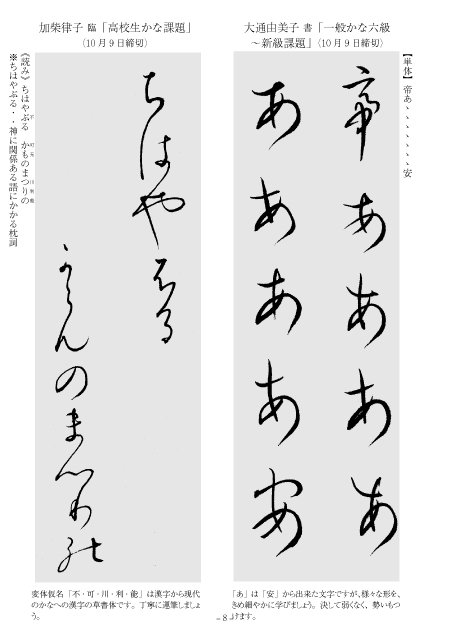 大通由美子 書「一般かな六級
～新級課題」(10月9日締切)
【単体】帝あ、、、、、、、、安
帝ああああ
ああああ安
「あ」は「安」から出来た文字ですが、様々な形を、
きめ細やかに学びましょう。決して弱くなく、勢いもつ
けます。
加柴律子 臨「高校生かな課題」
(10月9日締切)
ちはや不る
可ものま川利能
《読み》ちはやぶる かものまつりの
※ちはやぶる・・神に関係ある語にかかる枕詞
変体仮名「不・可・川・利・能」は漢字から現代
のかなへの漢字の草書体です。丁寧に運筆しましょ
う。
- 8